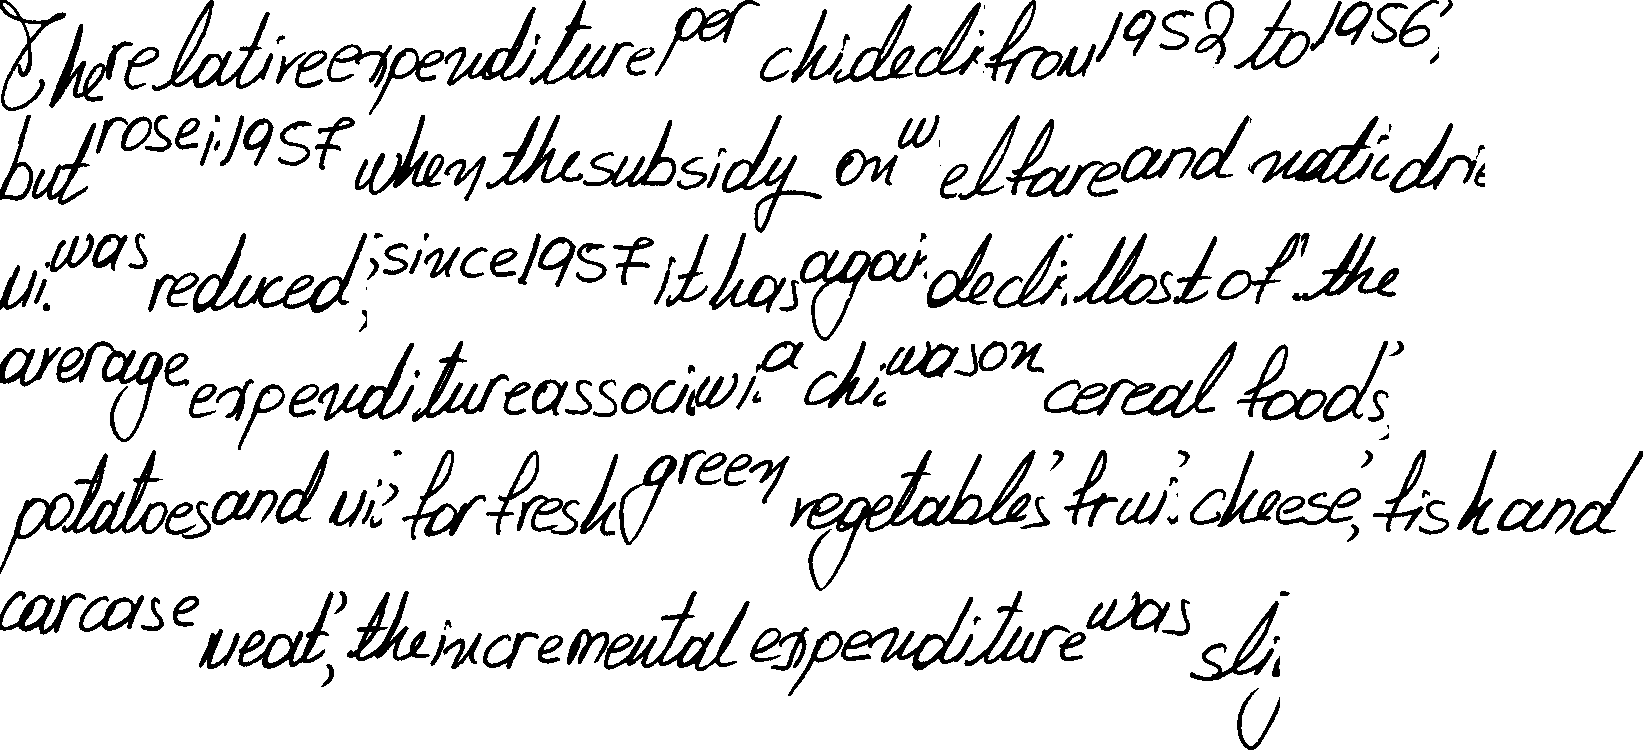 The relative expenditure per chi. decli. from 1952 to 1956,
but rose i. 1957 when the subsidy on welfare and
was reduced; since 1957 it has agai. decli. Most of the
average expenditure associ. wi. a chi. was on cereal foods,
potatoes and for fresh green vegetables, frui. cheese, fish and
carcase meat, the incremental expenditure was sli.